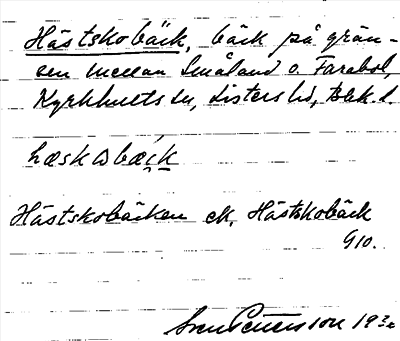 Hästskobäck, bäck på grän-
sen mellan Småland o. Farabol,
Kyrkhults sn, Listers hd, Blek. l.
hæskωbæ̀ck
Hästskobäcken ek, Hästskobäck
G10.
Sven Petersson 193